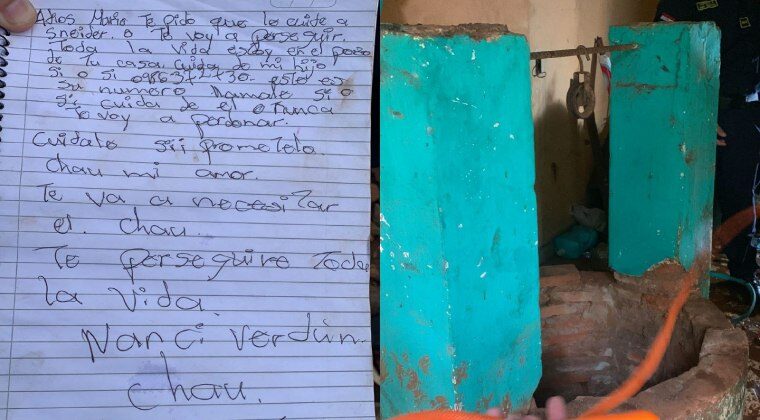 Adios Mario Te pido que lo cuide a
sneider. o Te voy a perseguir.
Toda la vida estoy en el poso
de Tu casa cuida de mi hijo
si o si este es
su numero llamale si o
si cuida de el o nunca
Te voy a perdonar.
Cuidalo sii prometelo.
chau mi amor.
Te va a necesitar
el. chau.
Te perseguire Toda
la vida.
Nanci Verdún.
chau.